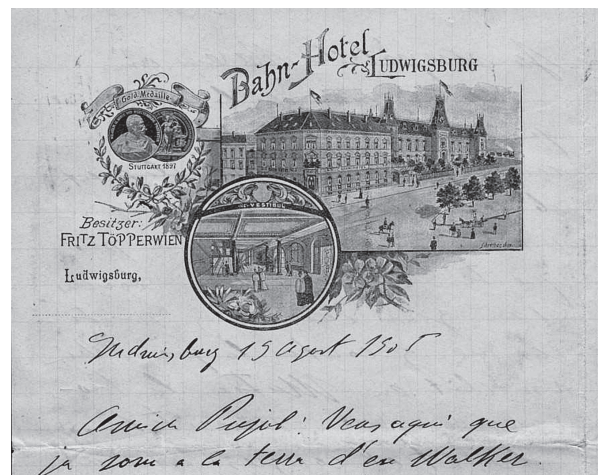 Bahn-Hotel
LUDWIGSBURG
Gold. Medaille
STUTTGART 1897
VESTIBÜL
Besitzer:
FRITZ TÖPPERWIEN
Ludwigsburg,
Ludwigsburg 19 Agost 1905
Amich Pujol: Veus aquí que
ja som a la terra d'en Walker.